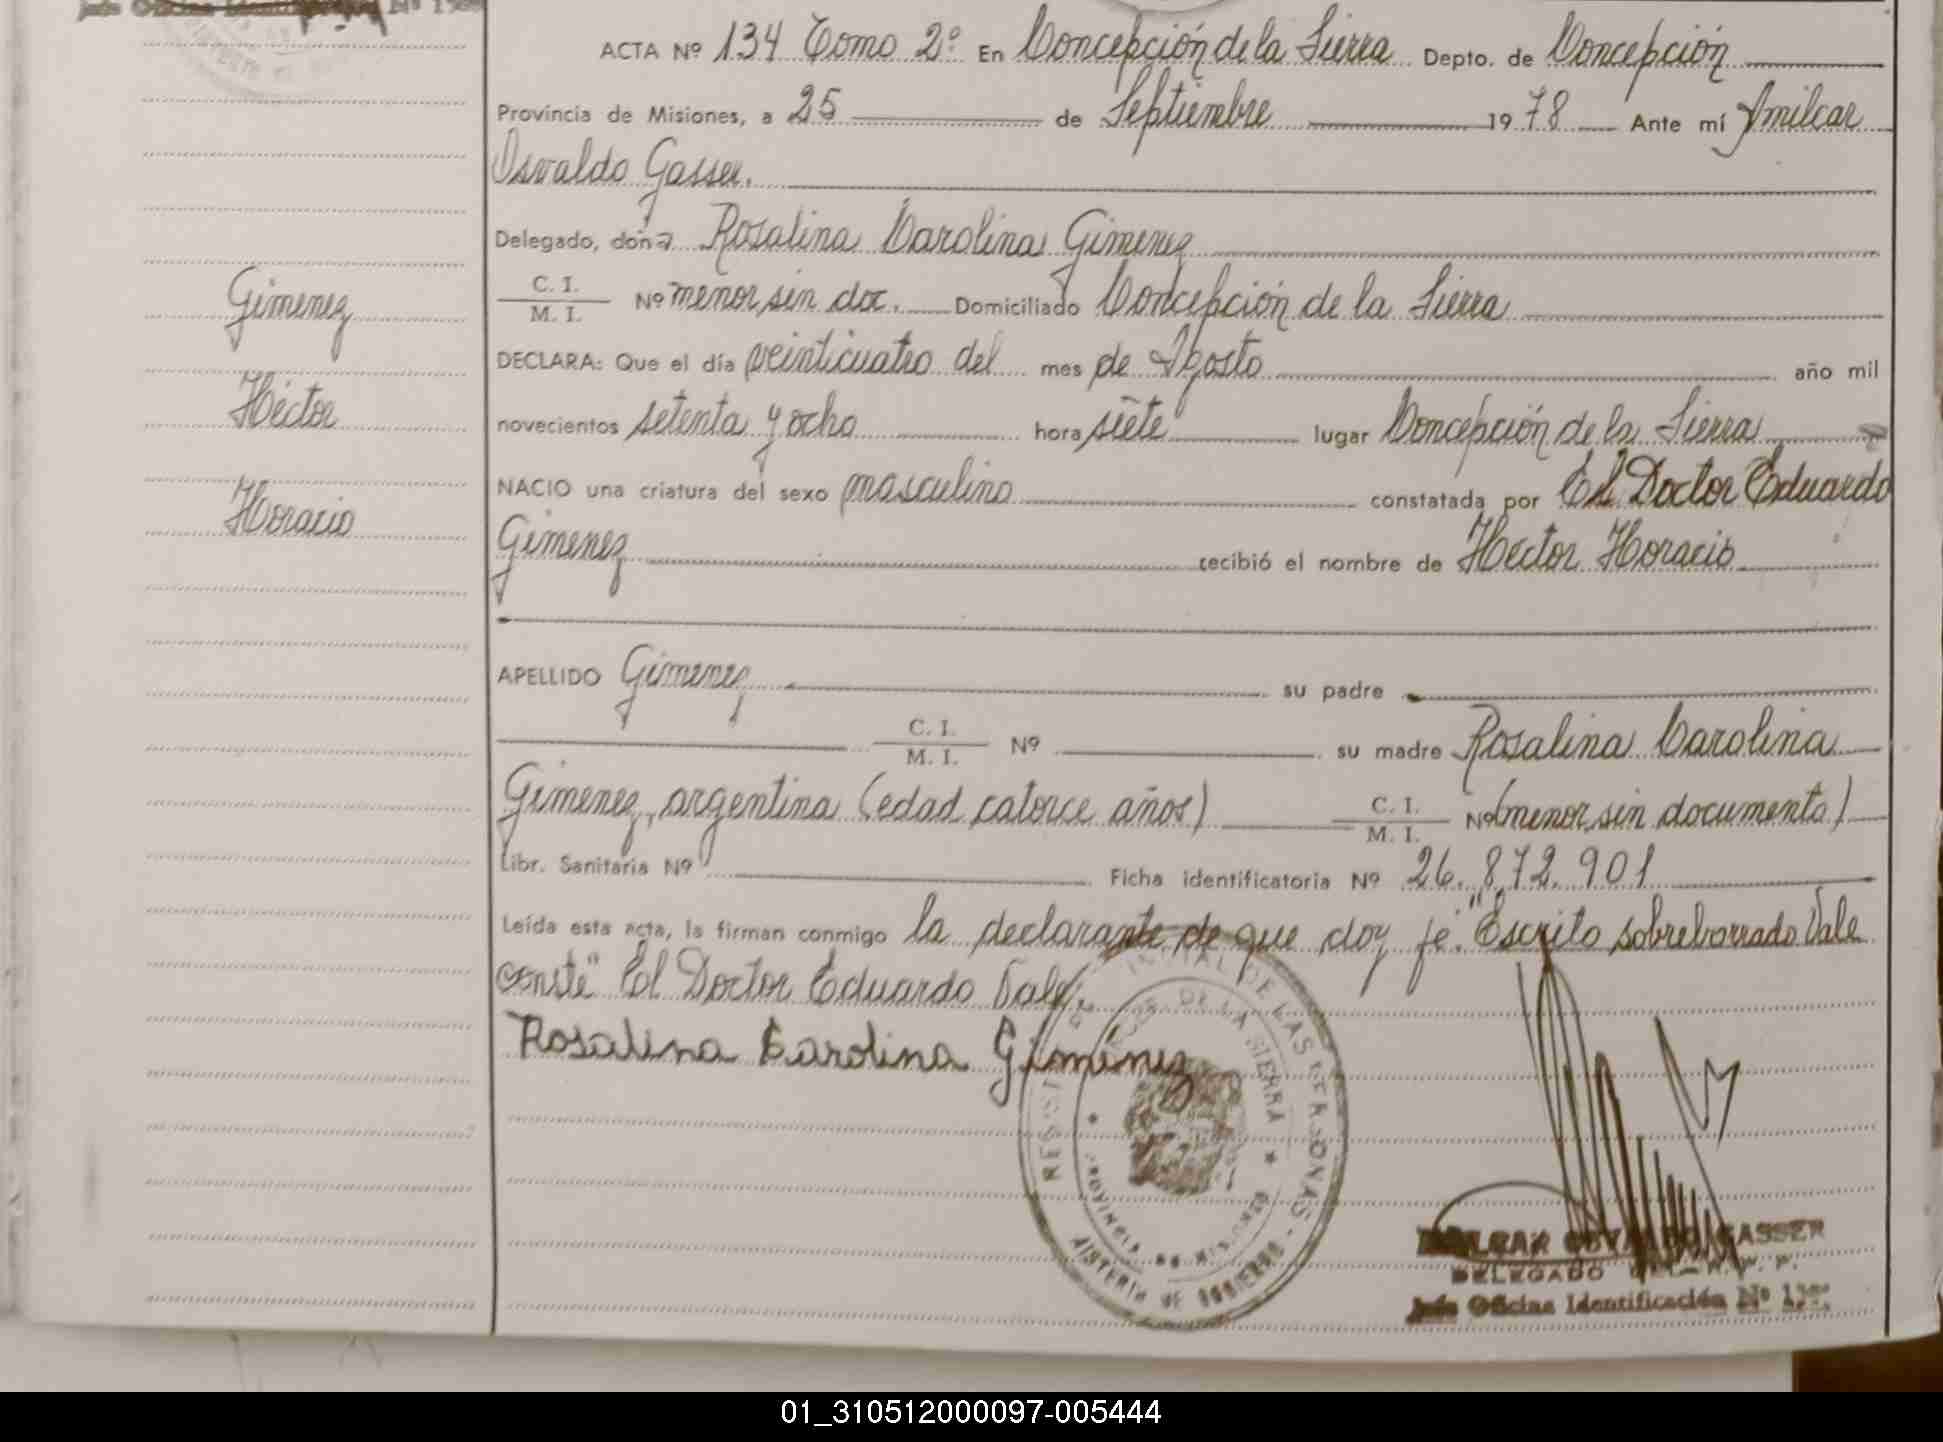 Jefe Oficina Identificación Nº
ACTA Nº 134 Tomo 2º En Concepción de la Sierra Depto. de Concepción
Provincia de Misiones, a 25 de Septiembre 1978 Ante mí Amilcar
Osvaldo Gasser.
Delegado, doña Rosalina Carolina Gimenez
C. I.
M. I. Nº menor sin doc. Domiciliado Concepción de la Sierra
Gimenez
DECLARA: Que el día veinticuatro del mes de Agosto año mil
Héctor
novecientos setenta y ocho hora siete lugar Concepción de la Sierra
NACIO una criatura del sexo masculino constatada por El Doctor Eduardo
Horacio
Gimenez recibió el nombre de Héctor Horacio
APELLIDO Gimenez su padre
C. I.
M. I. Nº su madre Rosalina Carolina
Gimenez, argentina (edad catorce años) C. I.
M. I. Nº (menor sin documento)
Libr. Sanitaria Nº Ficha identificatoria Nº 26.872.901
Leída esta acta, la firman conmigo la declarante de que doy fé. "Escrito sobreborrado Vale
conste" El Doctor Eduardo Vale.
Rosalina Carolina Giménez
DE LAS PERSONAS
DE LA SIERRA
PROVINCIA DE MISIONES
MINISTERIO DE GOBIERNO
AMILCAR OSVALDO GASSER
DELEGADO
Jefe Oficina Identificación Nº
01_310512000097-005444